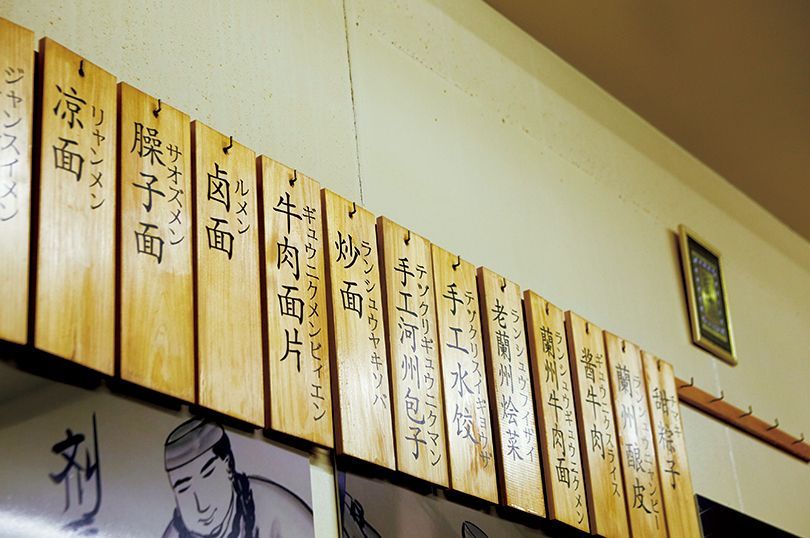 ジャンスイメン
凉面
リャンメン
臊子面
サオズメン
卤面
ルメン
牛肉面片
ギュウニクメンピィエン
炒面
ランシュウヤキソバ
手工河州包子
テヅクリギュウニクマン
手工水饺
テヅクリスイギョウザ
老蘭州烩菜
ランシュウフイザイ
蘭州牛肉面
ランシュウギュウニクメン
酱牛肉
ギュウニクスライス
蘭州酿皮
甜粽子
剂